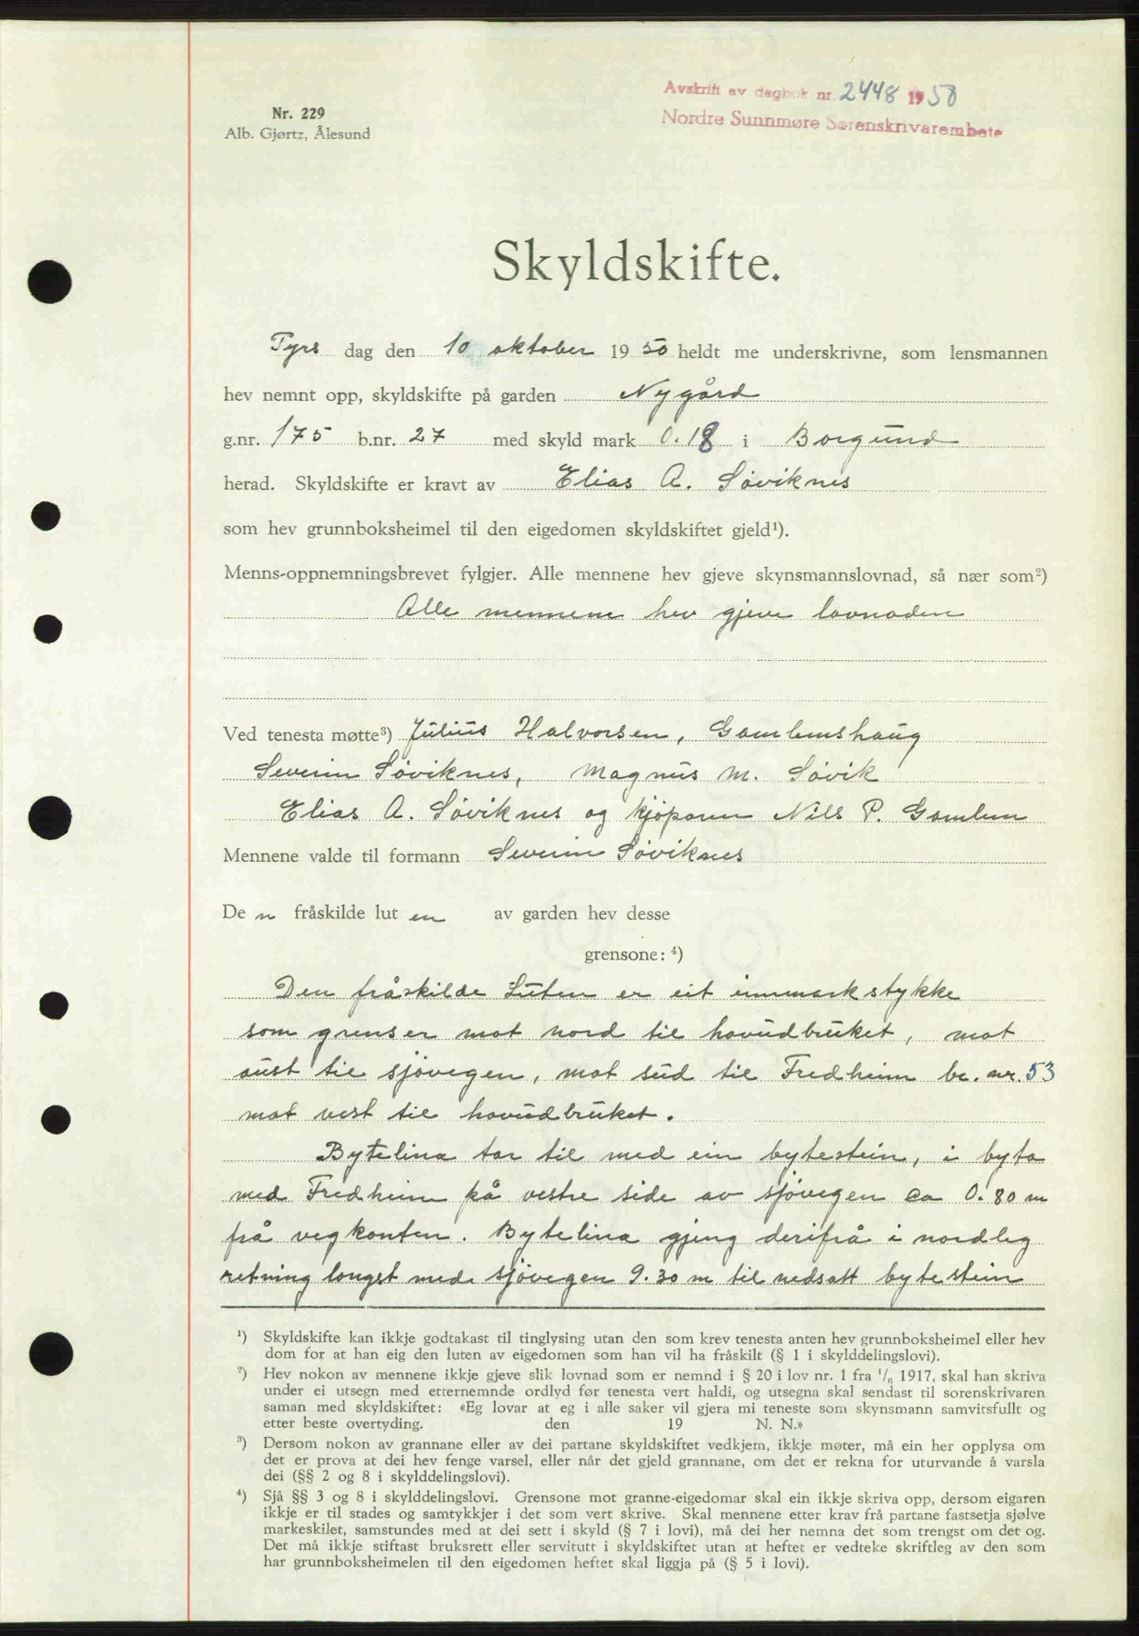 Avskrift av dagbok nr. 2448 1950
Nordre Sunnmøre Sorenskrivarembete
Nr. 229
Alb. Gjørtz, Ålesund
Skyldskifte.
Tyrs dag den 10 oktober 19 50 heldt me underskrivne, som lensmannen
hev nemnt opp, skyldskifte på garden Nygård
g.nr. 175 b.nr. 27 med skyld mark 0.18 i Borgund
herad. Skyldskifte er kravt av Elias A. Søviknes
som hev grunnboksheimel til den eigedomen skyldskiftet gjeld¹).
Menns-oppnemningsbrevet fylgjer. Alle mennene hev gjeve skynsmannslovnad, så nær som²)
Alle mennene hev gjeve lovnaden
Ved tenesta møtte³) Julius Halvorsen, Gamlemshaug
Severin Søviknes, Magnus M. Søvik
Elias A. Søviknes og kjøparen Nils P. Gamlem
Mennene valde til formann Severin Søviknes
De n fråskilde lut en av garden hev desse
grensone: ⁴)
Den fråskilde Luten er eit innmarkstykke
som grenser mot nord til hovudbruket, mot
aust til sjøvegen, mot sud til Fredheim br. nr. 53
mot vest til hovudbruket.
Bytelina tar til med ein bytestein, i byta
med Fredheim på vestre side av sjøvegen ca 0.80 m
frå vegkanten. Bytelina gjeng derifrå i nordleg
retning langst med sjøvegen 9.30 m til nedsatt bytestein
¹) Skyldskifte kan ikkje godtakast til tinglysing utan den som krev tenesta anten hev grunnboksheimel eller hev
dom for at han eig den luten av eigedomen som han vil ha fråskilt (§ 1 i skylddelingslovi).
²) Hev nokon av mennene ikkje gjeve slik lovnad som er nemnd i § 20 i lov nr. 1 fra ¹/₆ 1917, skal han skriva
under ei utsegn med etternemnde ordlyd før tenesta vert haldi, og utsegna skal sendast til sorenskrivaren
saman med skyldskiftet: «Eg lovar at eg i alle saker vil gjera mi teneste som skynsmann samvitsfullt og
etter beste overtyding. den 19 N. N.»
³) Dersom nokon av grannane eller av dei partane skyldskiftet vedkjem, ikkje møter, må ein her opplysa om
det er prova at dei hev fenge varsel, eller når det gjeld grannane, om det er rekna for uturvande å varsla
dei (§§ 2 og 8 i skylddelingslovi).
⁴) Sjå §§ 3 og 8 i skylddelingslovi. Grensone mot granne-eigedomar skal ein ikkje skriva opp, dersom eigaren
ikkje er til stades og samtykkjer i det som vert skrive. Skal mennene etter krav frå partane fastsetja sjølve
markeskilet, samstundes med at dei sett i skyld (§ 7 i lovi), må dei her nemna det som trengst om det og.
Det må ikkje stiftast bruksrett eller servitutt i skyldskiftet utan at heftet er vedteke skriftleg av den som
har grunnboksheimelen til den eigedomen heftet skal liggja på (§ 5 i lovi).